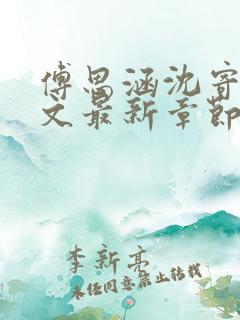 傅思涵沈寄
文最新章节
李新亮
未经同意禁止转载